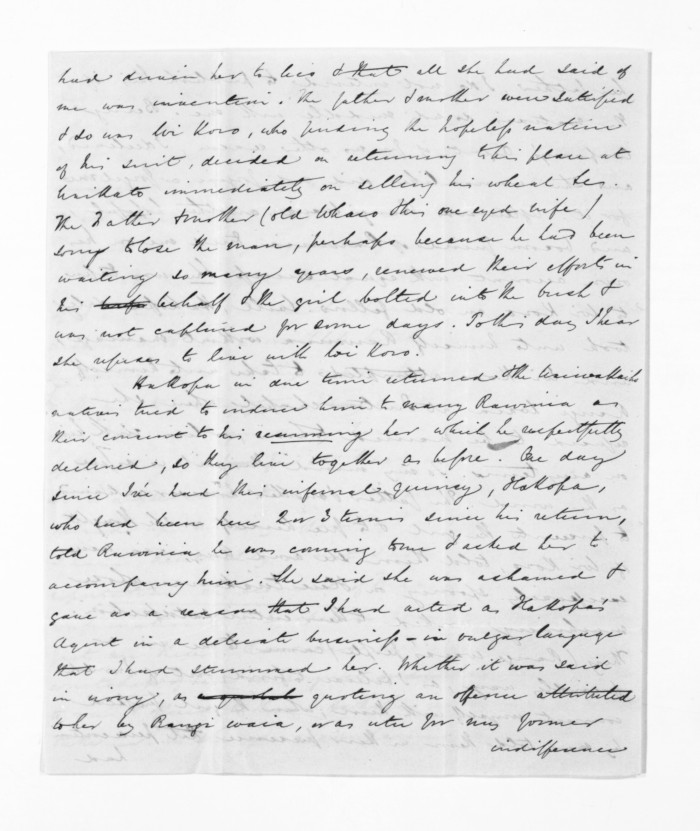 had driven her to lies & that all she had said of
me was invention. The father & mother were satisfied
& so was Wi Koro, who perceiving the hopeless nature
of his suit, decided on returning to his place at
Waikato immediately on selling his wheat &c.
The Father & mother (old Whare & his one eyed wife)
sorry to lose the man, perhaps because he had been
waiting so many years, renewed their efforts in
his behalf & the girl bolted into the bush &
was not captured for some days. To this day I hear
she refuses to live with Wi Koro.
Hakopa in due time returned & the
natives tried to induce him to marry Rawinia as
their consent to his her which he respectfully
declined, so they live together as before. One day
since I've had this infernal quincy, Hakopa,
who had been here 2 or 3 times since his return,
told Rawinia he was coming to me & asked her to
accompany him. She said she was ashamed &
gave as a reason that I had acted as Hakopa's
Agent in a delicate business – in vulgar language
that I had her. Whether it was said
in irony, as quoting an offence attributed
to her by Rangi waia, or as utu for my former
indifference